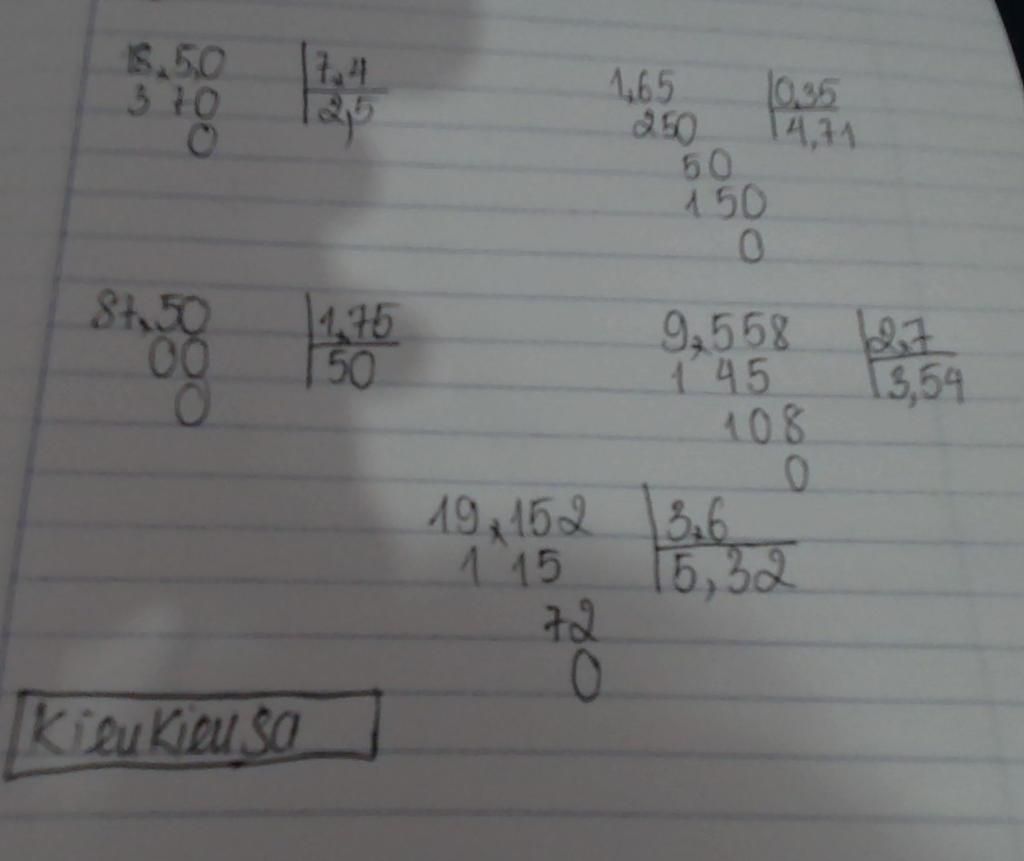 18,50 7,4
370 2,5
0
1,65 0,35
250 4,71
50
150
0
87,50 1,75
00 50
0
9,558 2,7
1 45 3,54
108
0
19,152 3,6
1 15 5,32
72
0
KieuKieu sa